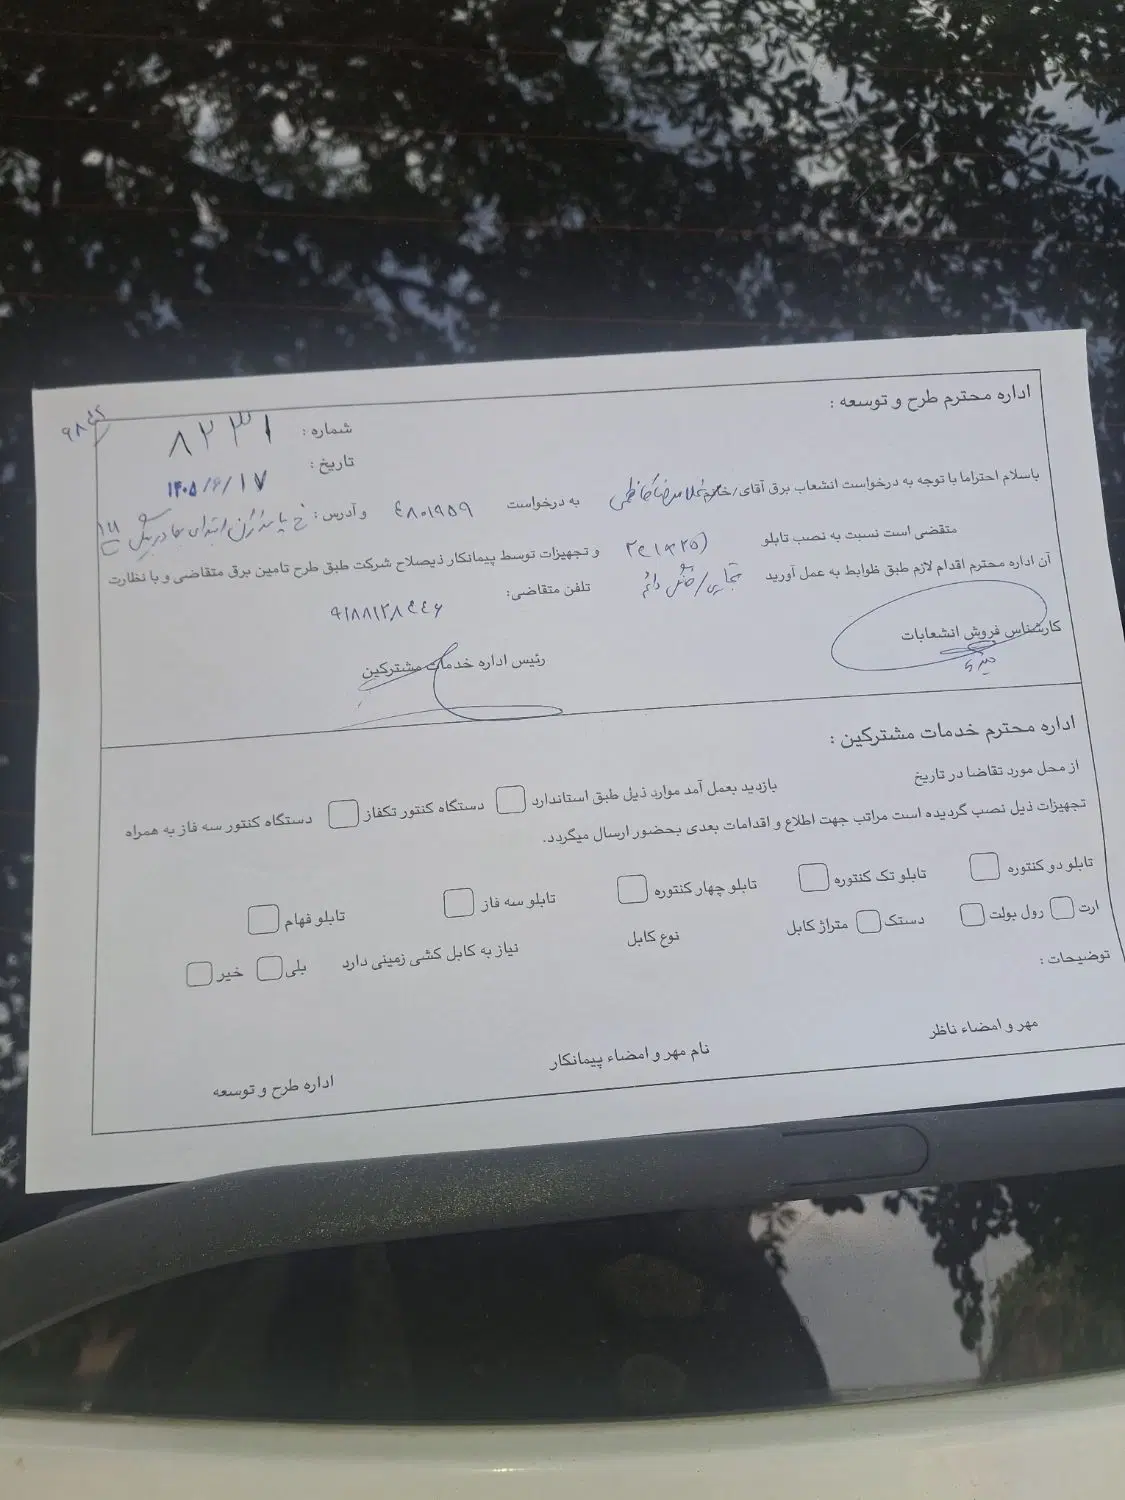 اداره محترم طرح و توسعه :
شماره : ۸۲۳۱
تاریخ : ۱۴۰۵/۶/۱۷
باسلام احتراما با توجه به درخواست انشعاب برق آقای/خانم غلامرضا کاظمی به درخواست ۴۸۰۱۹۵۹ و آدرس : خ پاسداران ابتدای
متقضی است نسبت به نصب تابلو و تجهیزات توسط پیمانکار ذیصلاح شرکت طبق طرح تامین برق متقاضی و با نظارت
آن اداره محترم اقدام لازم طبق ظوابط به عمل آورید تجاری / دائم تلفن متقاضی:
کارشناس فروش انشعابات
رئیس اداره خدمات مشترکین
اداره محترم خدمات مشترکین :
از محل مورد تقاضا در تاریخ بازدید بعمل آمد موارد ذیل طبق استاندارد دستگاه کنتور تکفاز دستگاه کنتور سه فاز به همراه
تجهیزات ذیل نصب گردیده است مراتب جهت اطلاع و اقدامات بعدی بحضور ارسال میگردد.
تابلو دو کنتوره تابلو تک کنتوره تابلو چهار کنتوره تابلو سه فاز تابلو فهام
ارت رول بولت دستک متراژ کابل نوع کابل نیاز به کابل کشی زمینی دارد بلی خیر
توضیحات :
مهر و امضاء ناظر نام مهر و امضاء پیمانکار اداره طرح و توسعه